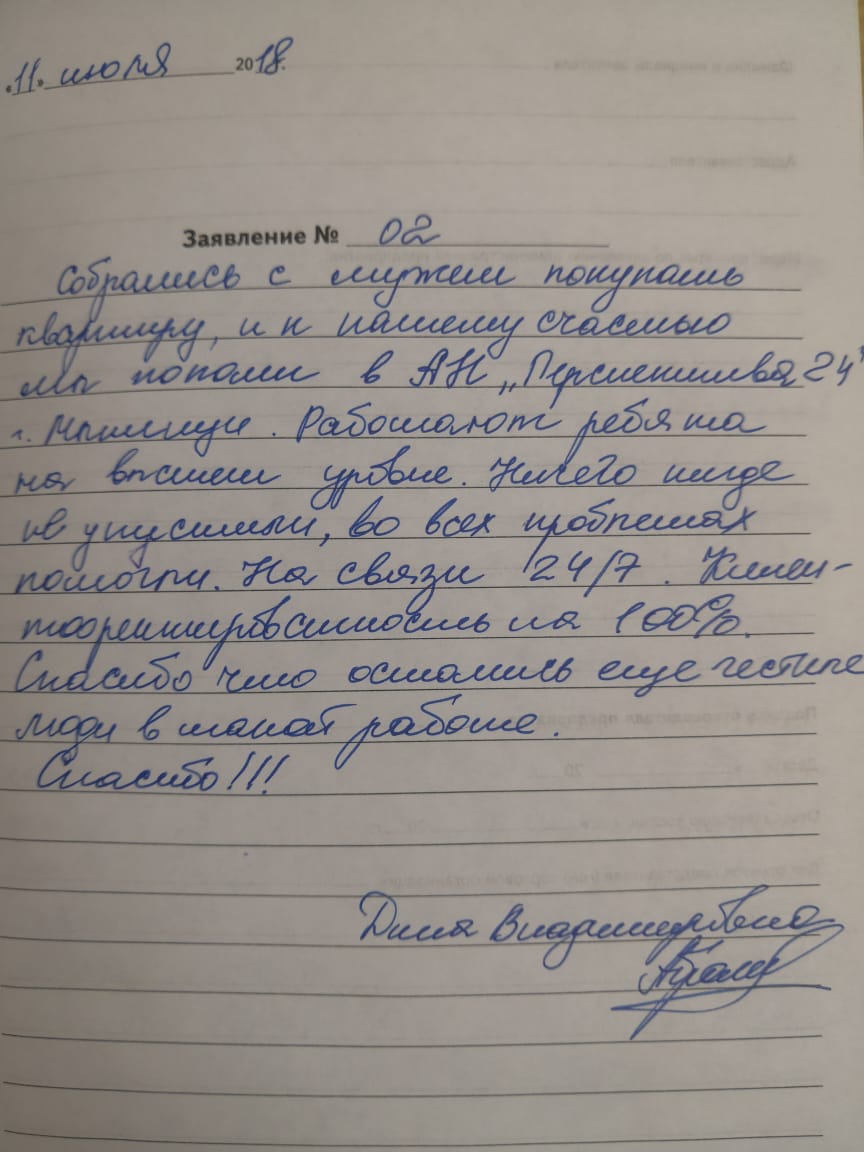 «11» июля 2018.
Заявление № 02
Собрались с мужем покупать
квартиру, и к нашему счастью
мы попали в АН „Перспектива 24"
г. Мытищи. Работают ребята
на высшем уровне. Ничего нигде
не упустили, во всех проблемах
помогли. На связи 24/7. Клиен-
тоориентированность на 100%.
Спасибо что остались еще честные
люди в такой работе.
Спасибо!!!
Дина Владимировна